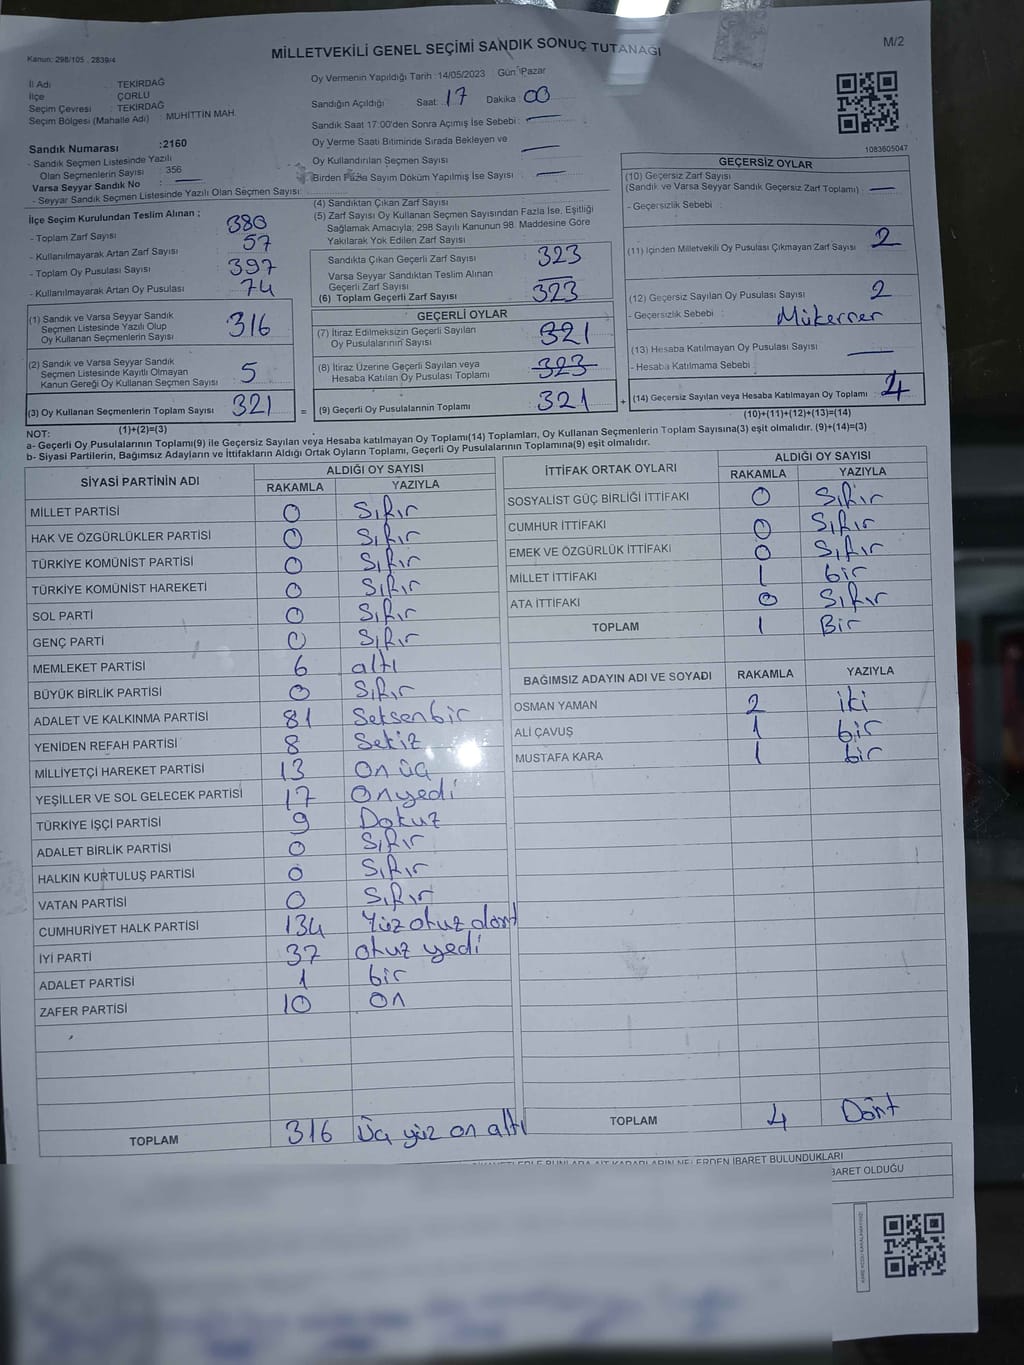 Kanun: 298/105 , 2839/4
MİLLETVEKİLİ GENEL SEÇİMİ SANDIK SONUÇ TUTANAĞI
M/2
İl Adı : TEKİRDAĞ
İlçe : ÇORLU
Seçim Çevresi : TEKİRDAĞ
Seçim Bölgesi (Mahalle Adı) : MUHİTTİN MAH.
Sandık Numarası :2160
- Sandık Seçmen Listesinde Yazılı
Olan Seçmenlerin Sayısı : 356
Varsa Seyyar Sandık No :
- Seyyar Sandık Seçmen Listesinde Yazılı Olan Seçmen Sayısı:
Oy Vermenin Yapıldığı Tarih :14/05/2023 Gün: Pazar
Sandığın Açıldığı Saat: 17 Dakika 00
Sandık Saat 17:00'den Sonra Açımış İse Sebebi :
Oy Verme Saati Bitiminde Sırada Bekleyen ve
Oy Kullandırılan Seçmen Sayısı
Birden Fazla Sayım Döküm Yapılmış İse Sayısı :
1083605047
İlçe Seçim Kurulundan Teslim Alınan ;
- Toplam Zarf Sayısı : 380
- Kullanılmayarak Artan Zarf Sayısı : 57
- Toplam Oy Pusulası Sayısı : 397
- Kullanılmayarak Artan Oy Pusulası : 74
(1) Sandık ve Varsa Seyyar Sandık
Seçmen Listesinde Yazılı Olup
Oy Kullanan Seçmenlerin Sayısı : 316
(2) Sandık ve Varsa Seyyar Sandık
Seçmen Listesinde Kayıtlı Olmayan
Kanun Gereği Oy Kullanan Seçmen Sayısı : 5
(3) Oy Kullanan Seçmenlerin Toplam Sayısı : 321
(1)+(2)=(3)
(4) Sandıktan Çıkan Zarf Sayısı
(5) Zarf Sayısı Oy Kullanan Seçmen Sayısından Fazla İse, Eşitliği
Sağlamak Amacıyla; 298 Sayılı Kanunun 98. Maddesine Göre
Yakılarak Yok Edilen Zarf Sayısı
Sandıkta Çıkan Geçerli Zarf Sayısı : 323
Varsa Seyyar Sandıktan Teslim Alınan
Geçerli Zarf Sayısı :
(6) Toplam Geçerli Zarf Sayısı : 323
GEÇERLİ OYLAR
(7) İtiraz Edilmeksizin Geçerli Sayılan
Oy Pusulalarının Sayısı : 321
(8) İtiraz Üzerine Geçerli Sayılan veya
Hesaba Katılan Oy Pusulası Toplamı : 323
= (9) Geçerli Oy Pusulalarının Toplamı : 321 +
GEÇERSİZ OYLAR
(10) Geçersiz Zarf Sayısı
(Sandık ve Varsa Seyyar Sandık Geçersiz Zarf Toplamı) :
- Geçersizlik Sebebi :
(11) İçinden Milletvekili Oy Pusulası Çıkmayan Zarf Sayısı : 2
(12) Geçersiz Sayılan Oy Pusulası Sayısı : 2
- Geçersizlik Sebebi : Mükerrer
(13) Hesaba Katılmayan Oy Pusulası Sayısı :
- Hesaba Katılmama Sebebi :
(14) Geçersiz Sayılan veya Hesaba Katılmayan Oy Toplamı : 4
(10)+(11)+(12)+(13)=(14)
NOT:
a- Geçerli Oy Pusulalarının Toplamı(9) ile Geçersiz Sayılan veya Hesaba katılmayan Oy Toplamı(14) Toplamları, Oy Kullanan Seçmenlerin Toplam Sayısına(3) eşit olmalıdır. (9)+(14)=(3)
b- Siyasi Partilerin, Bağımsız Adayların ve İttifakların Aldığı Ortak Oyların Toplamı, Geçerli Oy Pusulalarının Toplamına(9) eşit olmalıdır.
SİYASİ PARTİNİN ADI ALDIĞI OY SAYISI
RAKAMLA YAZIYLA
MİLLET PARTİSİ 0 Sıfır
HAK VE ÖZGÜRLÜKLER PARTİSİ 0 Sıfır
TÜRKİYE KOMÜNİST PARTİSİ 0 Sıfır
TÜRKİYE KOMÜNİST HAREKETİ 0 Sıfır
SOL PARTİ 0 Sıfır
GENÇ PARTİ 0 Sıfır
MEMLEKET PARTİSİ 6 altı
BÜYÜK BİRLİK PARTİSİ 0 Sıfır
ADALET VE KALKINMA PARTİSİ 81 Seksenbir
YENİDEN REFAH PARTİSİ 8 Sekiz
MİLLİYETÇİ HAREKET PARTİSİ 13 On üç
YEŞİLLER VE SOL GELECEK PARTİSİ 17 Onyedi
TÜRKİYE İŞÇİ PARTİSİ 9 Dokuz
ADALET BİRLİK PARTİSİ 0 Sıfır
HALKIN KURTULUŞ PARTİSİ 0 Sıfır
VATAN PARTİSİ 0 Sıfır
CUMHURİYET HALK PARTİSİ 134 Yüz otuz dört
İYİ PARTİ 37 otuz yedi
ADALET PARTİSİ 1 bir
ZAFER PARTİSİ 10 On
TOPLAM 316 Üç yüz on altı
İTTİFAK ORTAK OYLARI ALDIĞI OY SAYISI
RAKAMLA YAZIYLA
SOSYALİST GÜÇ BİRLİĞİ İTTİFAKI 0 Sıfır
CUMHUR İTTİFAKI 0 Sıfır
EMEK VE ÖZGÜRLÜK İTTİFAKI 0 Sıfır
MİLLET İTTİFAKI 1 bir
ATA İTTİFAKI 0 Sıfır
TOPLAM 1 Bir
BAĞIMSIZ ADAYIN ADI VE SOYADI RAKAMLA YAZIYLA
OSMAN YAMAN 2 iki
ALİ ÇAVUŞ 1 bir
MUSTAFA KARA 1 bir
TOPLAM 4 Dört
NELERDEN İBARET BULUNDUKLARI
BARET OLDUĞU